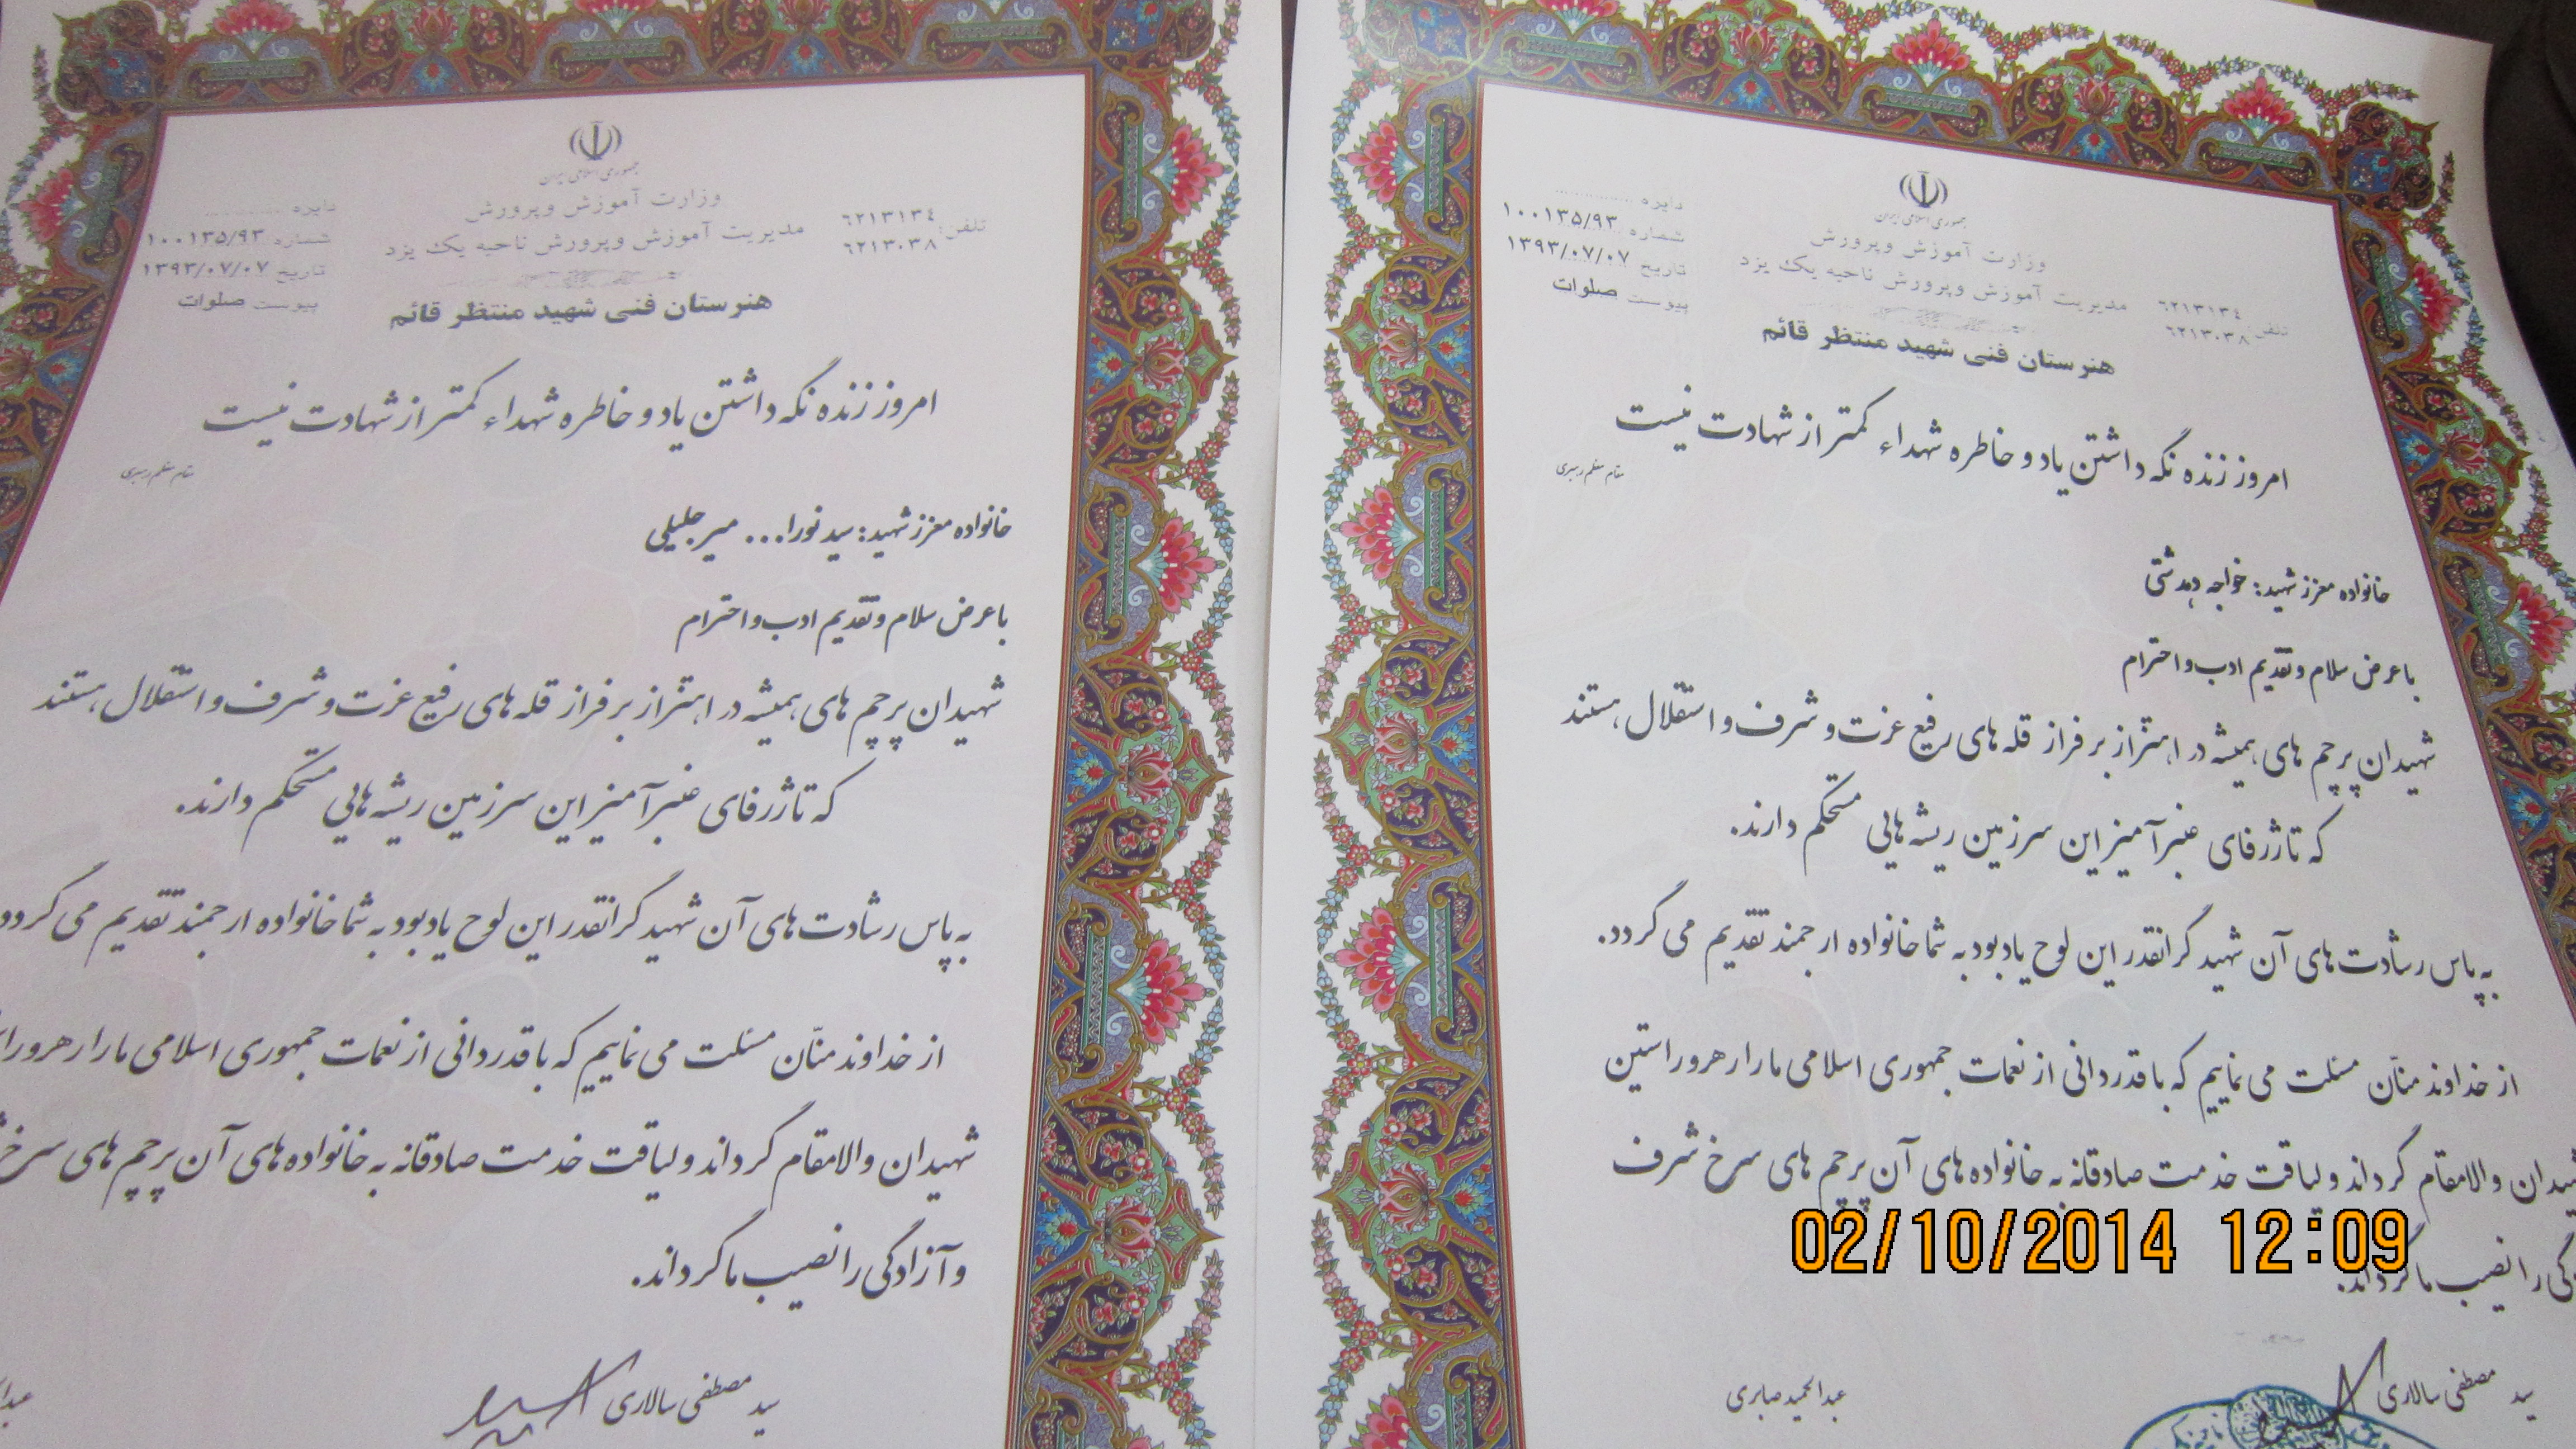 جمهوری اسلامی ایران
وزارت آموزش وپرورش
مدیریت آموزش وپرورش ناحیه یک یزد
هنرستان فنی شهید منتظر قائم
تلفن: ٦٢١٣١٣٤
٦٢١٣٠٣٨
دایره
شماره ۱۰۰۱۳۵/۹۳
تاریخ ۱۳۹۳/۰۷/۰۷
پیوست صلوات
امروز زنده نگه داشتن یاد و خاطره شهداء کمتر از شهادت نیست
مقام معظم رهبری
خانواده معزز شهید: خواجه دهدشتی
با عرض سلام و تقدیم ادب و احترام
شهیدان پرچم های همیشه در اهتزاز بر فراز قله های رفیع عزت و شرف و استقلال هستند
که تا ژرفای عنبرآمیز این سرزمین ریشه هایی مستحکم دارند.
به پاس رشادت های آن شهید گرانقدر این لوح یادبود به شما خانواده ارجمند تقدیم می گردد.
از خداوند منّان مسئلت می نماییم که با قدردانی از نعمات جمهوری اسلامی ما را رهرو راستین
شهیدان والامقام گرداند و لیاقت خدمت صادقانه به خانواده های آن پرچم های سرخ شرف
را نصیب ما گرداند.
سید مصطفی سالاری
عبدالحمید صابری
جمهوری اسلامی ایران
وزارت آموزش وپرورش
مدیریت آموزش وپرورش ناحیه یک یزد
هنرستان فنی شهید منتظر قائم
تلفن: ٦٢١٣١٣٤
٦٢١٣٠٣٨
دایره
شماره ۱۰۰۱۳۵/۹۳
تاریخ ۱۳۹۳/۰۷/۰۷
پیوست صلوات
امروز زنده نگه داشتن یاد و خاطره شهداء کمتر از شهادت نیست
مقام معظم رهبری
خانواده معزز شهید: سید نورا... میرجلیلی
با عرض سلام و تقدیم ادب و احترام
شهیدان پرچم های همیشه در اهتزاز بر فراز قله های رفیع عزت و شرف و استقلال هستند
که تا ژرفای عنبرآمیز این سرزمین ریشه هایی مستحکم دارند.
به پاس رشادت های آن شهید گرانقدر این لوح یادبود به شما خانواده ارجمند تقدیم می گردد
از خداوند منّان مسئلت می نماییم که با قدردانی از نعمات جمهوری اسلامی ما را رهرو
شهیدان والامقام گرداند و لیاقت خدمت صادقانه به خانواده های آن پرچم های سرخ
و آزادگی را نصیب ما گرداند.
سید مصطفی سالاری
02/10/2014 12:09